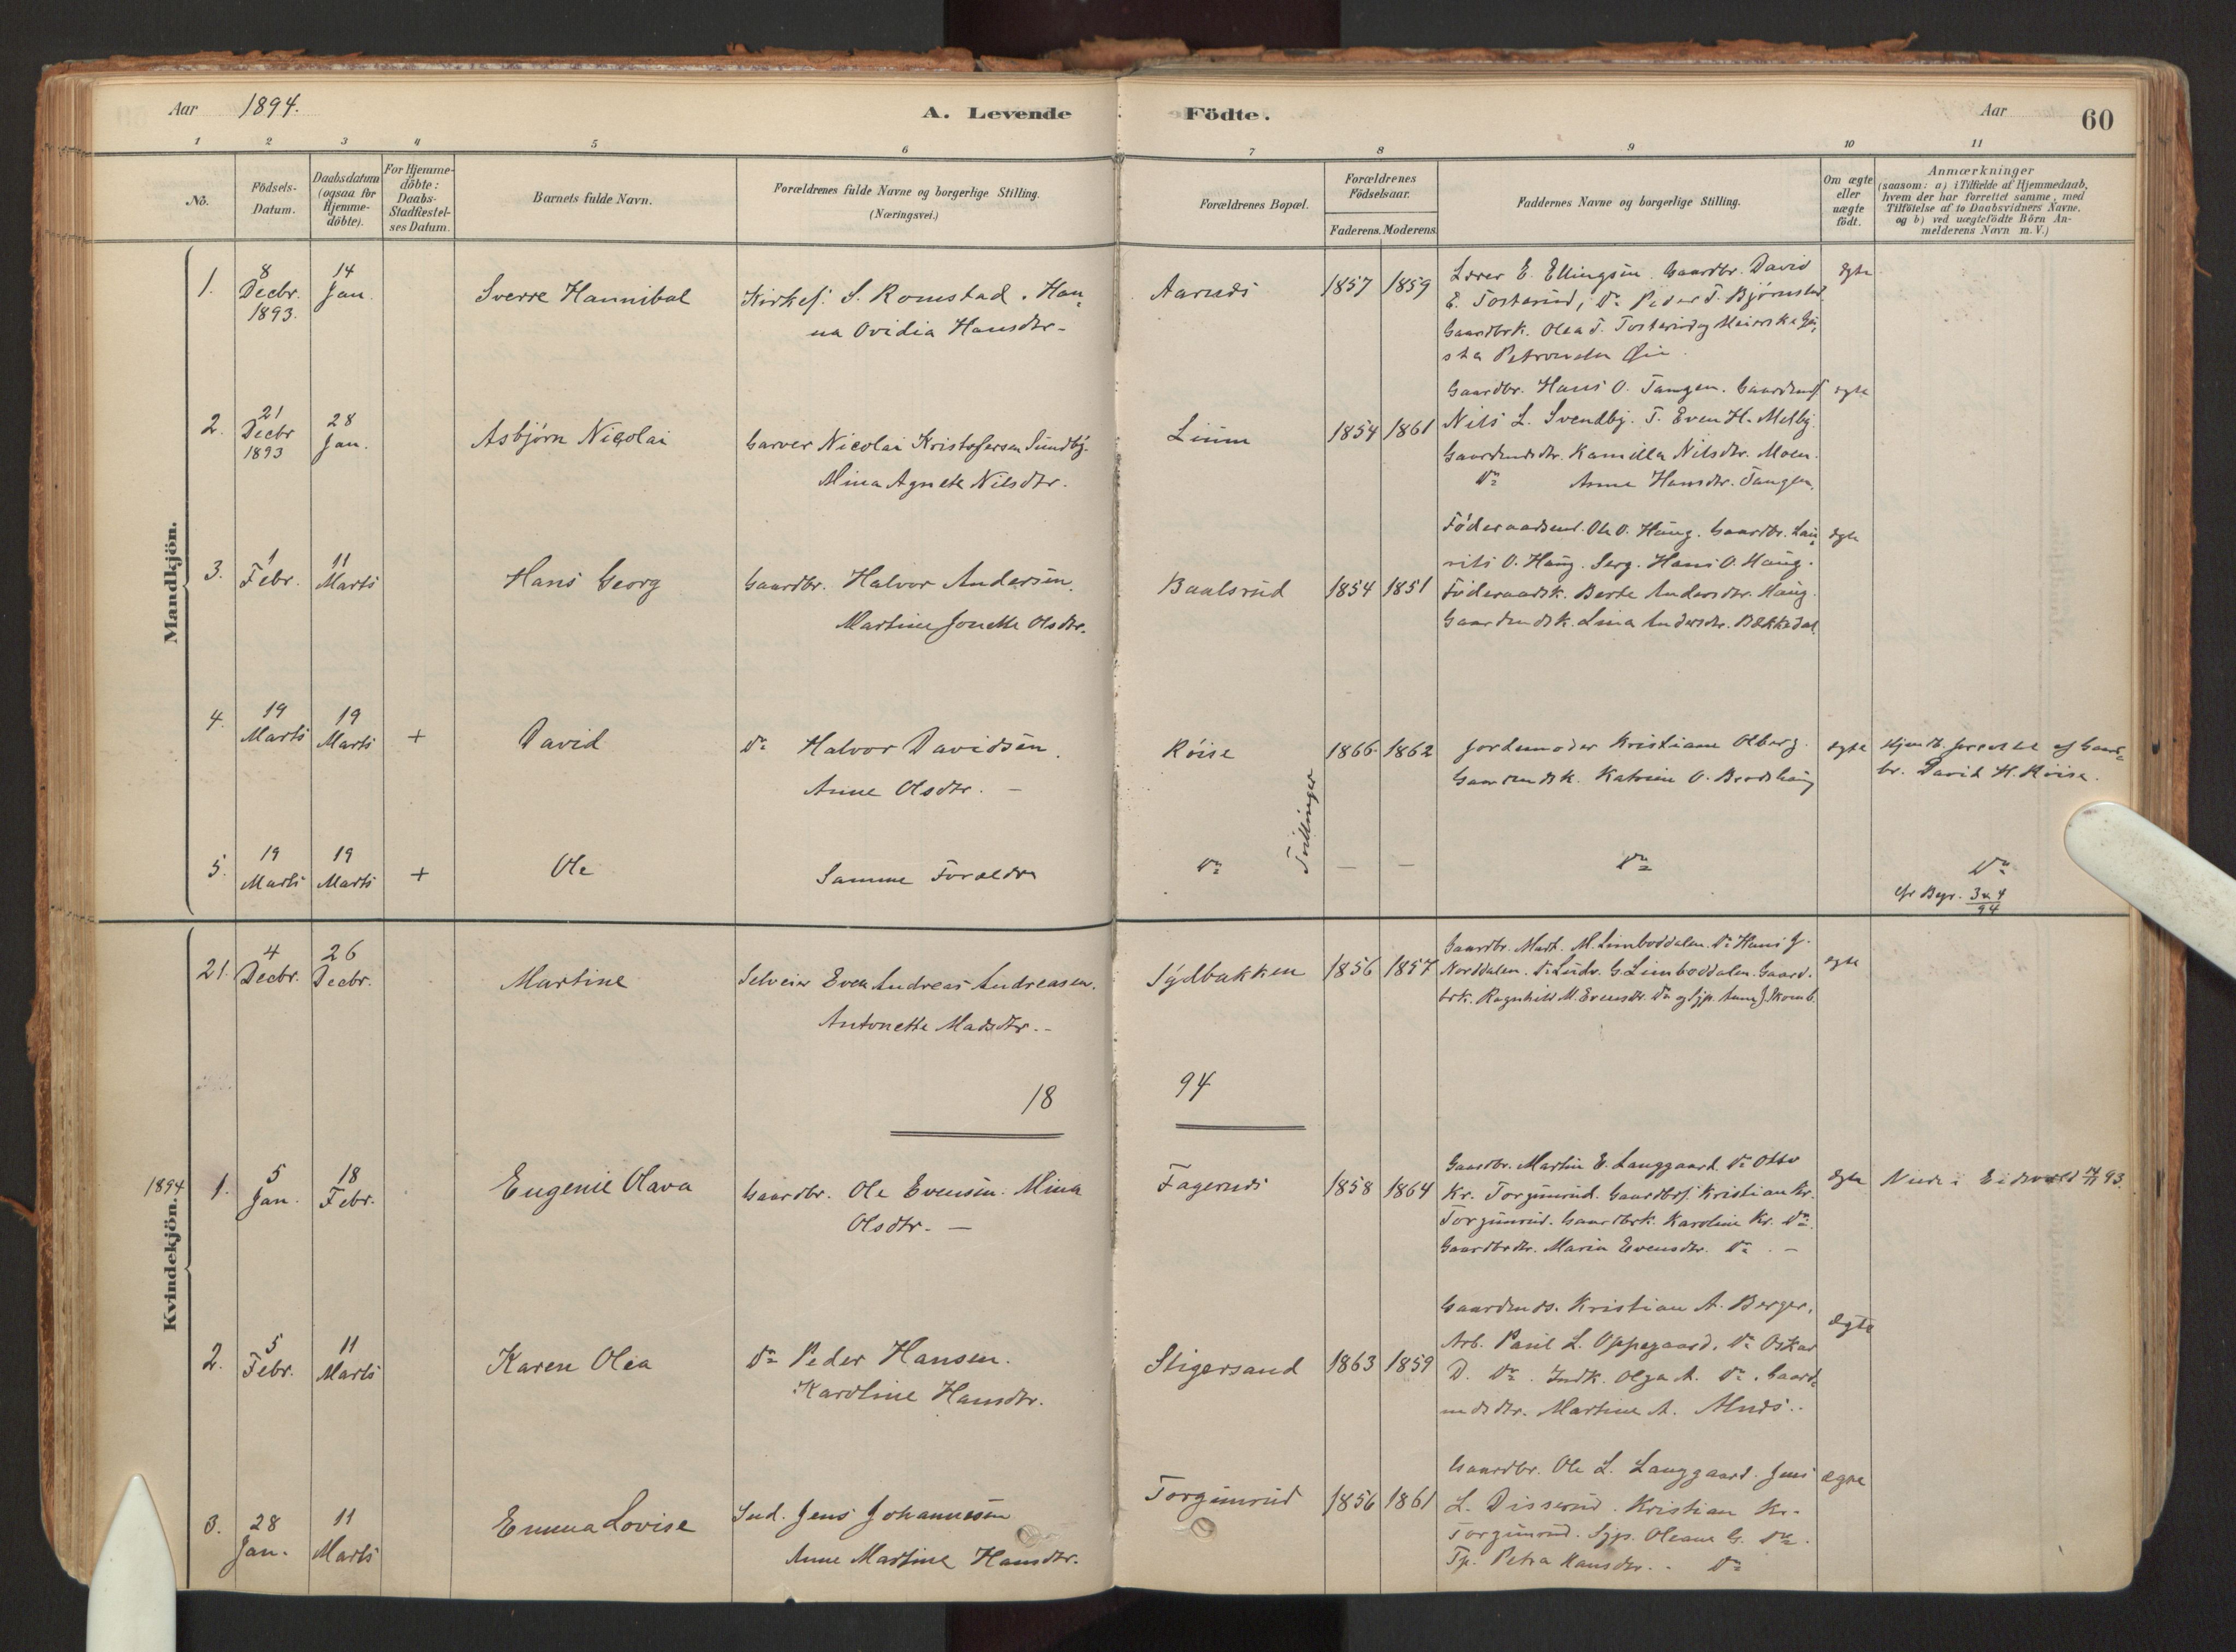 Aar 1894. A. Levende Födte. Aar 60
1 2 3 4 5 6 7 8 9 10 11
No.
Födsels-Datum.
Daabsdatum (ogsaa for Hjemme-döbte).
For Hjemme-döbte: Daabs-Stadfæstel-ses Datum.
Barnets fulde Navn.
Forældrenes fulde Navne og borgerlige Stilling. (Næringsvei.)
Forældrenes Bopæl.
Forældrenes Födselsaar.
Faderens. Moderens.
Faddernes Navne og borgerlige Stilling.
Om ægte eller uægte födt.
Anmærkninger
(saasom: a) i Tilfælde af Hjemmedaab,
hvem der har forrettet samme, med
Tilföielse af to Daabsvidners Navne.
og b) ved uægtefödte Börn An-
melderens Navn m.V.)
Mandkjön.
1. 8 Decbr. 1893. 14 Jan. Sverre Hannibal
Kirkes. S. Romstad. Han-
na Ovidia Hansdtr.-
Aarnæs 1857 1859
Lærer E. Ellingsen. Gaardbr. David
E. Tosterud, Do Peder T. Bjørnstad
Gaardbrk. Olea T. Tosterud og
Petronelle
ægte
2. 21 Decbr 1893 28 Jan. Asbjørn Nicolai
Garver Nicolai Kristofersen Sundby.
Mina Agnete Nilsdtr.
Linm 1854 1861
Gaardbr. Hans O. Tangen. Gaardmds.
Nils L. Svendby. T. Even H. Melby.
Gaardmdsdtr. Kamilla Nilsdtr. Moen.
Do Anne Hansdtr. Tangen.
ægte
3. 1 Febr. 11 Marts Hans Georg
Gaardbr. Halvor Andersen.
Martine Jonette Olsdtr.
Baalsrud 1854 1851
Føderaadsmd. Ole O. Haug. Gaardbr. Lau-
rits O. Haug. Serg. Hans O. Haug.
Føderaadsk. Berte Andersdtr. Haug.
Gaardmdsk. Lina Andersdtr. Bækkedal
ægte
4. 19 Marts 19 Marts + David
Do Halvor Davidsen.
Anne Olsdtr. -
Røise 1866. 1862
Jordemoder Kristiane Olberg.
Gaardmdsk. Katrine O. Brodshaug
ægte
Hjemdb. forrettet af Gaard-
br. David H. Røise.
Tvillinger
5. 19 Marts 19 Marts + Ole
Samme Forældre
Do - - Do Do
cfr Begr. 3&4/94
Kvindekjön.
21. 4 Decbr. 26 Decbr. Martine
Selveier Even Andreas Andreasen.
Antonette Madsdtr.-
Sydbakken 1856 1857
Gaardbr. Mart. M. Limboddalen. Do Hans J.
Norddalen. Do Ludv. G. Limboddalen. Gaard-
brk. Ragnhild M. Evensdtr. Do og Pjp. Anne J.
ægte
18 94
1894
1. 5 Jan. 18 Febr. Eugenie Olava
Gaardbr. Ole Evensen. Mina
Olsdtr. -
Fagernæs 1858 1864
Gaardbr. Martin E. Langgaard. Do Otto
Kr. Torgunrud. Gaardbrs. Kristian Kr.
Torgunrud. Gaardbrk. Karoline Kr. Do.
Gaardbrdtr. Maria Evensdtr. Do. -
ægte
Viede i Eidsvold 93.
2. 5 Febr. 11 Marts Karen Olea
Do Peder Hansen.
Karoline Hansdtr.
Stigersand 1863 1859
Gaardmds. Kristian A. Berger.
Arb. Paul L. Oppegaard. Do Oskar
D. Do. Indk. Olga A. Do. Gaard-
mdsdtr. Martine A. Alnæs..
ægte
3. 28 Jan. 11 Marts Emma Lovise
Ind. Jens Johannesen
Anne Martine Hansdtr.
Torgunrud 1856 1861
Gaardbr. Ole L. Langgaard. Jens
L. Disserud. Kristian Kr.
Torgunrud. Pjp. Oleane G. Do.
Tp. Petra Hansdtr. . Do
ægte